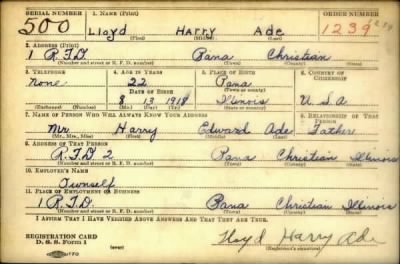 SERIAL NUMBER 1. NAME (Print) ORDER NUMBER
500 Lloyd Harry Ade 1239
(First) (Middle) (Last)
2. ADDRESS (Print)
1 R.F.D Pana Christian
(Number and street or R. F. D. number) (Town) (County) (State)
3. TELEPHONE 4. AGE IN YEARS 5. PLACE OF BIRTH 6. COUNTRY OF CITIZENSHIP
none 22 Pana
DATE OF BIRTH (Town or county)
8 13 1918 Illinois U.S.A
(Exchange) (Number) (Mo.) (Day) (Yr.) (State or country)
7. NAME OF PERSON WHO WILL ALWAYS KNOW YOUR ADDRESS 8. RELATIONSHIP OF THAT PERSON
Mr Harry Edward Ade Father
(Mr., Mrs., Miss) (First) (Middle) (Last)
9. ADDRESS OF THAT PERSON
R.F.D 2 Pana Christian Illinois
(Number and street or R. F. D. number) (Town) (County) (State)
10. EMPLOYER'S NAME
Ownself
11. PLACE OF EMPLOYMENT OR BUSINESS
1 R.F.D Pana Christian Illinois
(Number and street or R. F. D. number) (Town) (County) (State)
I AFFIRM THAT I HAVE VERIFIED ABOVE ANSWERS AND THAT THEY ARE TRUE.
REGISTRATION CARD
D. S. S. Form 1 Lloyd Harry Ade
(Registrant's signature)